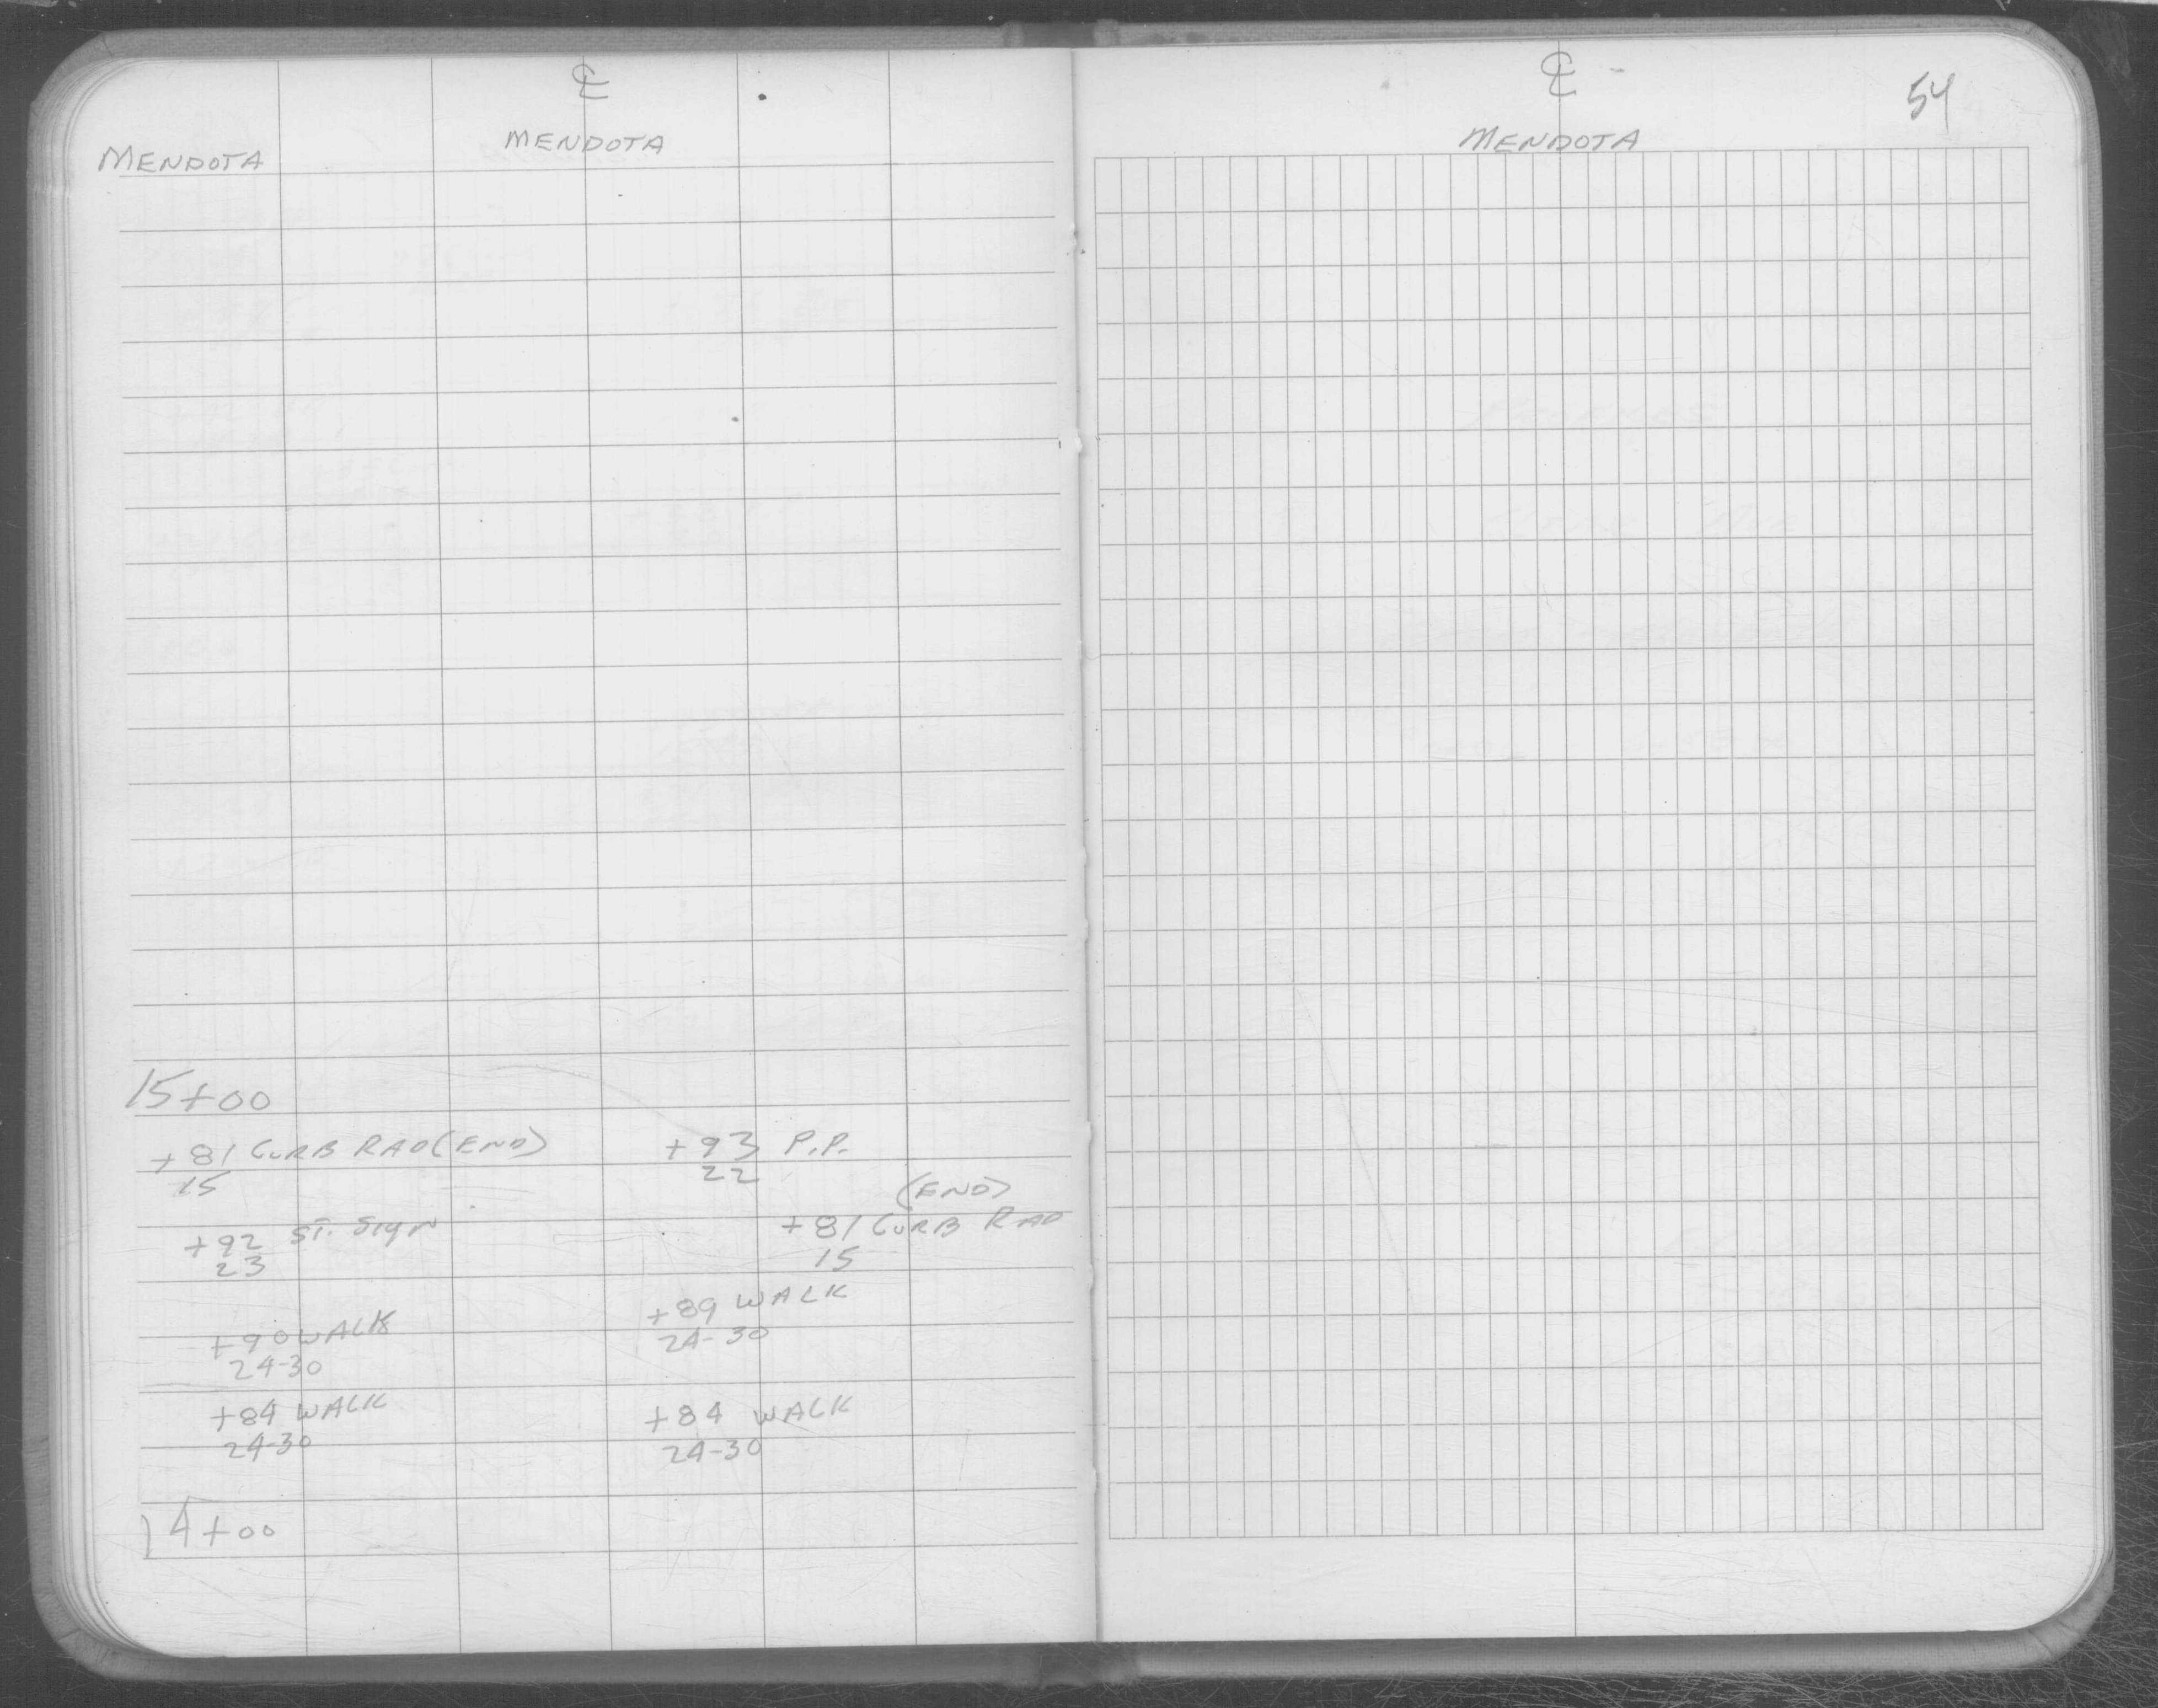 ℄
MENDOTA
MENDOTA
15+00
+81 CURB RAD (END)
15
+93 P.P.
22
(END)
+81 CURB RAD
15
+92 ST. SIGN
23
+89 WALK
24-30
+90 WALK
24-30
+84 WALK
24-30
+84 WALK
24-30
14+00
℄
54
MENDOTA